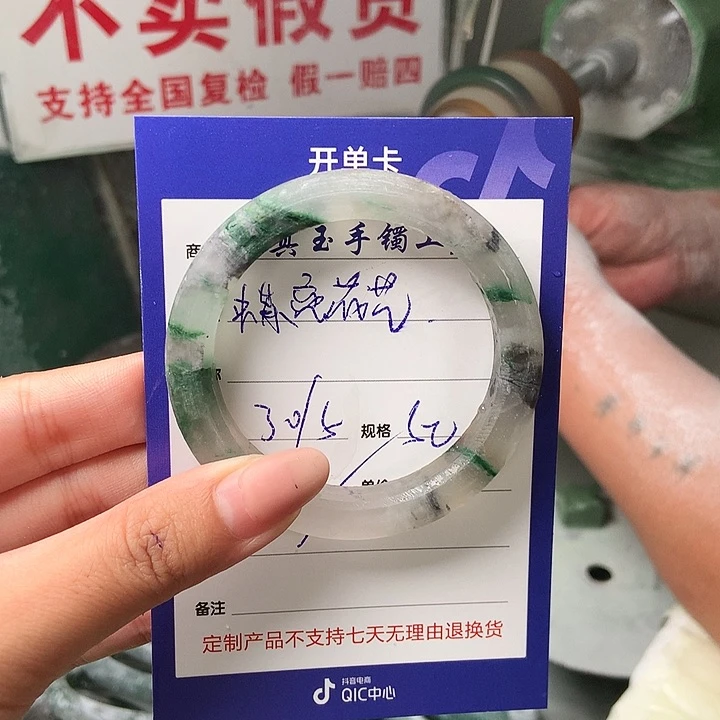 不卖假货
支持全国复检 假一赔四
开单卡
商
玉手镯
花艺
30/5 规格 50
单价
备注
定制产品不支持七天无理由退换货
抖音电商
QIC中心